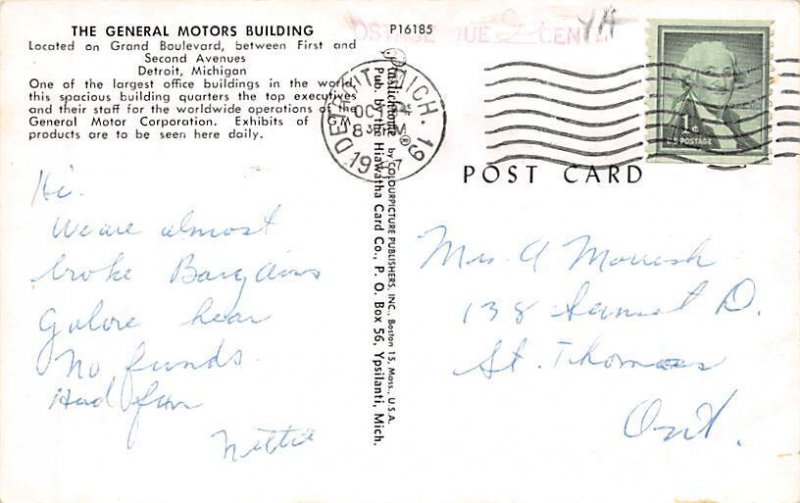 THE GENERAL MOTORS BUILDING
Located on Grand Boulevard, between First and
Second Avenues
Detroit, Michigan
One of the largest office buildings in the world,
this spacious building quarters the top executives
and their staff for the worldwide operations of the
General Motor Corporation. Exhibits of GM
products are to be seen here daily.
P16185
POSTAGE DUE 2 CENTS
DETROIT, MICH. 19
OCT
19
1¢
U.S. POSTAGE
POST CARD
Plastichrome® by COLOURPICTURE PUBLISHERS, INC., Boston 15, Mass., U.S.A.
Pub. by the Hiawatha Card Co., P. O. Box 56, Ypsilanti, Mich.
Hi.
We are almost
broke Bargains
Galore hear
No funds.
Had fun
Nettie
Mrs. A
138 D.
St. Thomas
Ont.